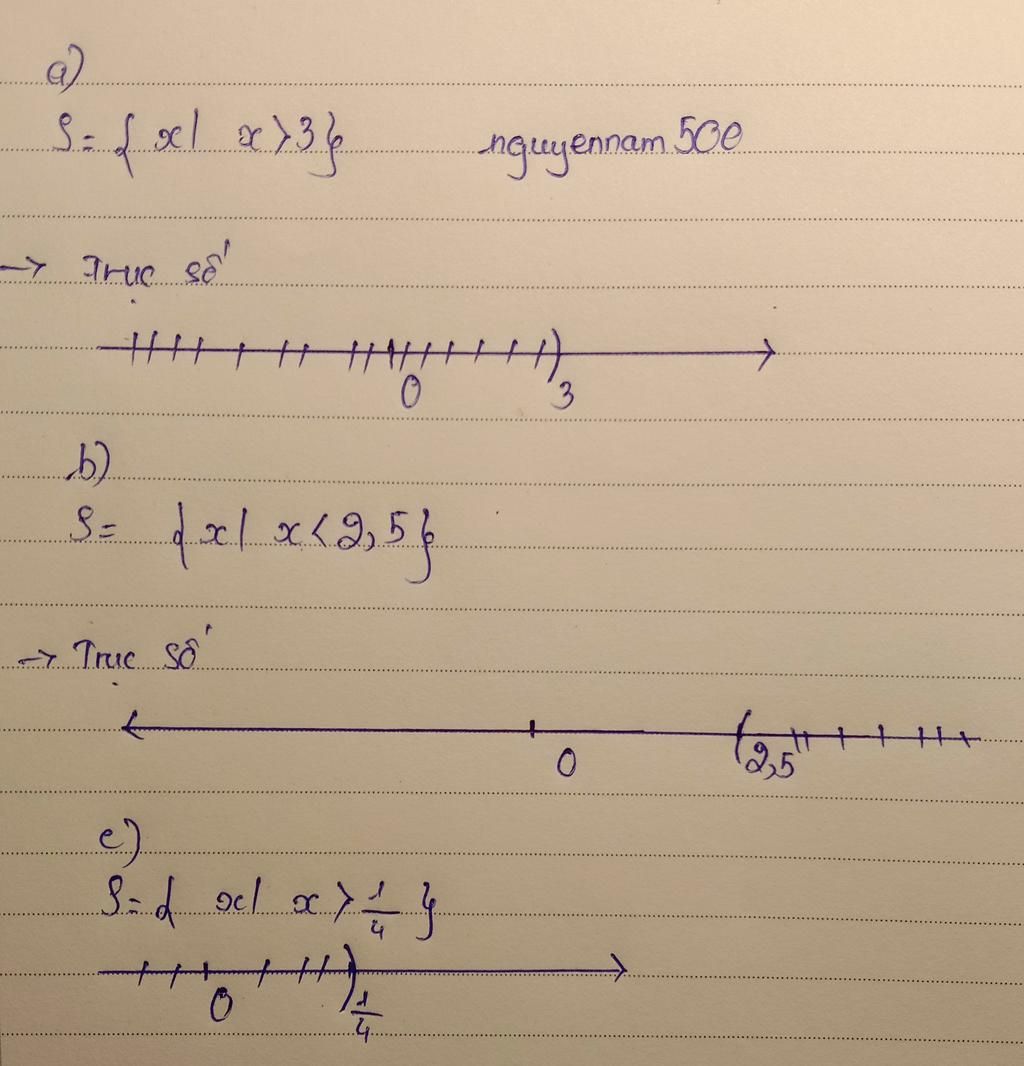 a)
S = { x | x > 3 } nguyennam500
→ Trục số
0 3
b)
S = { x | x < 2,5 }
→ Trục số
0 2,5
c)
S = { x | x > 1/4 }
0 1/4